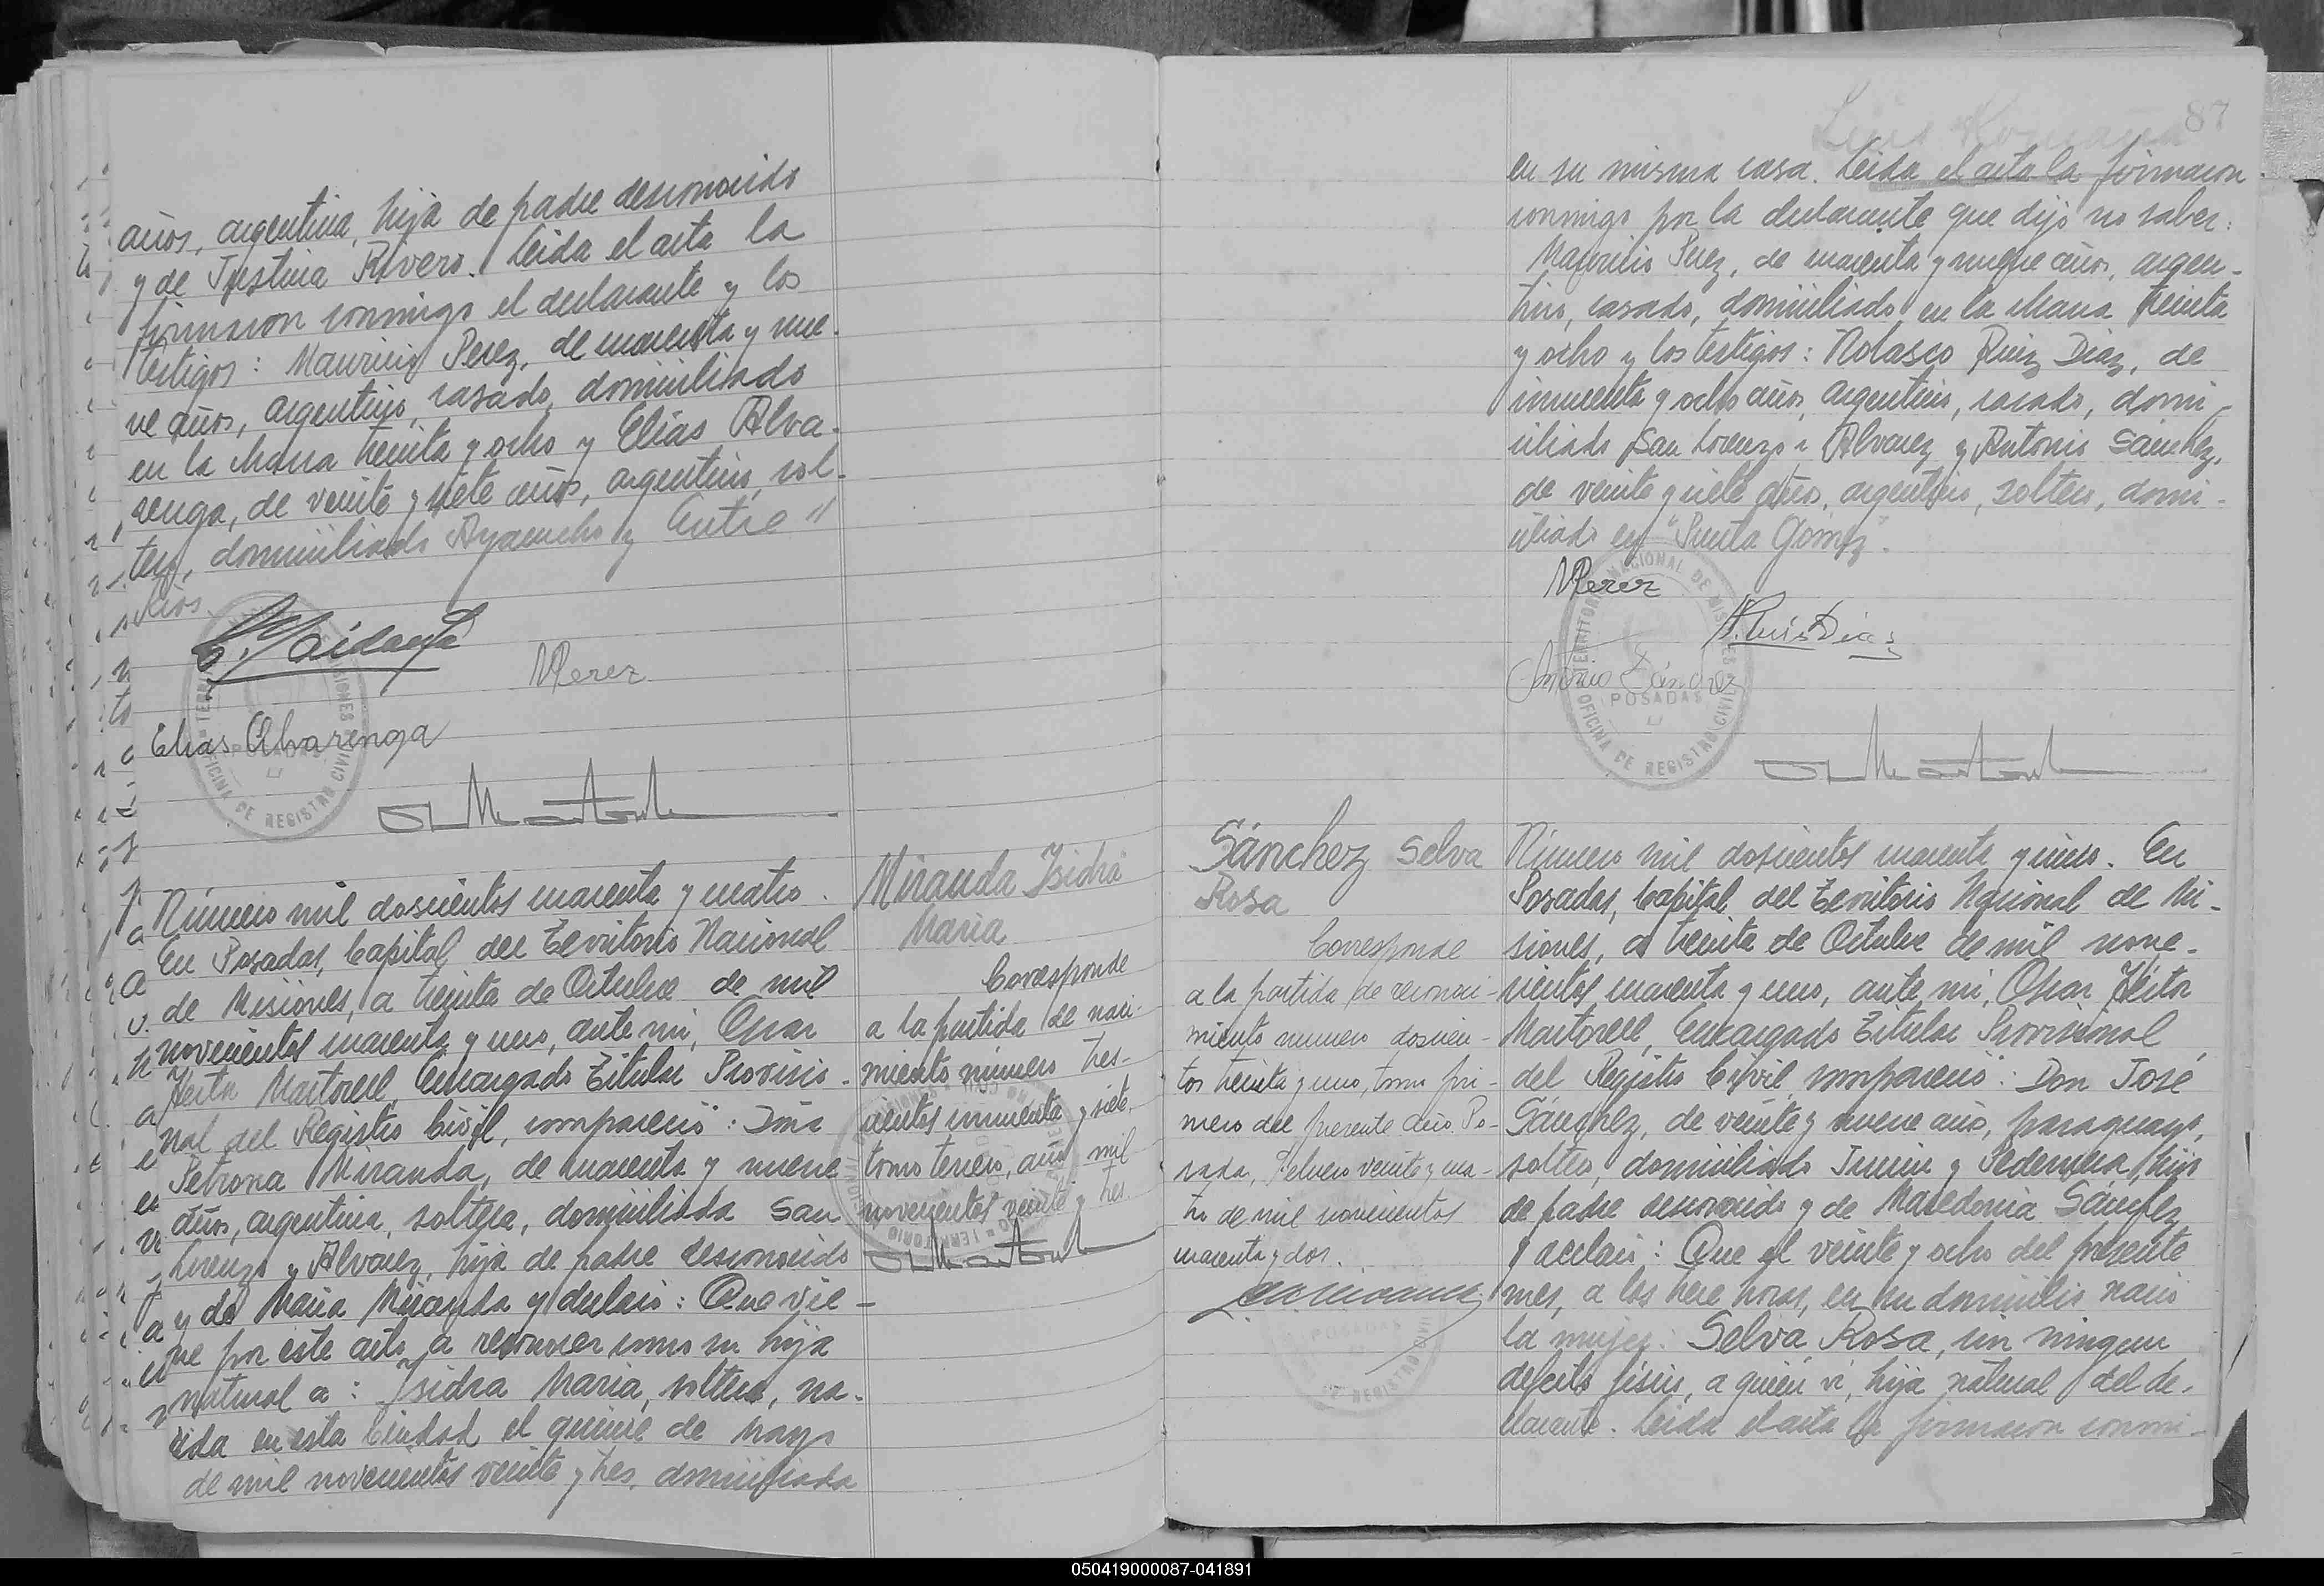 años, argentina, hija de padre desconocido
y de Justina Rivero. Leida el acta la
firmaron conmigo el declarante y los
testigos: Mauricio Perez, de cuarenta y nue-
ve años, argentino, casado, domiciliado
en la Mana treinta y ocho y Elias Alva-
renga, de veinte y siete años, argentino, sol-
tero, domiciliado Ayacucho y Entre
Rios.
Perez
Elias Alvarenga
TERRITORIO NACIONAL DE MISIONES
OFICINA DE REGISTRO CIVIL
POSADAS
Número mil doscientos cuarenta y cuatro.
En Posadas, Capital del Territorio Nacional
de Misiones, a treinta de Octubre de mil
novecientos cuarenta y uno, ante mi, Oscar
Héctor Martorell, Encargado Titular Proviso-
nal del Registro Civil, compareció: Doña
Petrona Miranda, de cuarenta y nueve
años, argentina, soltera, domiciliada San
Lorenzo y Alvarez, hija de padre desconocido
y de Maria Miranda y declaró: Que vie-
ne por este acto a reconocer como su hija
natural a: Isidra Maria, soltera, na-
cida en esta Ciudad el quince de Mayo
de mil novecientos veinte y tres, domiciliada
Miranda Isidra
Maria
Corresponde
a la partida de naci-
miento número tres-
cientos cincuenta y siete,
tomo tercero, año mil
novecientos veinte y tres.
87
en su misma casa. Leida el acta la firmaron
conmigo por la declarante que dijo no saber:
Mauricio Perez, de cuarenta y nueve años, argen-
tino, casado, domiciliado en la Mana treinta
y ocho y los testigos: Nolasco Ruiz Diaz, de
cincuenta y ocho años, argentino, casado, domi-
ciliado San Lorenzo y Alvarez y Antonio Sánchez,
de veinte y siete años, argentino, soltero, domi-
ciliado en "Punta Gómez".
Perez
N. Ruiz Diaz
Antonio Sánchez
TERRITORIO NACIONAL DE MISIONES
POSADAS
OFICINA DE REGISTRO CIVIL
Sánchez Selva
Rosa
Corresponde
a la partida de reconoci-
miento numero doscien-
tos treinta y uno, tomo pri-
mero del presente año. Po-
sadas, Febrero veinte y cua-
tro de mil novecientos
cuarenta y dos.
POSADAS
DE REGISTRO CIVIL
Número mil doscientos cuarenta y cinco. En
Posadas, Capital del Territorio Nacional de Mi-
siones, a treinta de Octubre de mil nove-
cientos cuarenta y uno, ante mi, Oscar Héctor
Martorell, Encargado Titular Provisional
del Registro Civil, compareció: Don José
Sánchez, de veinte y nueve años, paraguayo,
soltero, domiciliado Junin y Federación, hijo
de padre desconocido y de Macedonia Sánchez
y declaró: Que el veinte y ocho del presente
mes, a las trece horas, en su domicilio nació
la mujer: Selva Rosa, sin ningun
defecto fisico, a quién vi, hija natural del de-
clarante. Leida el acta la firmaron conmi-
050419000087-041891